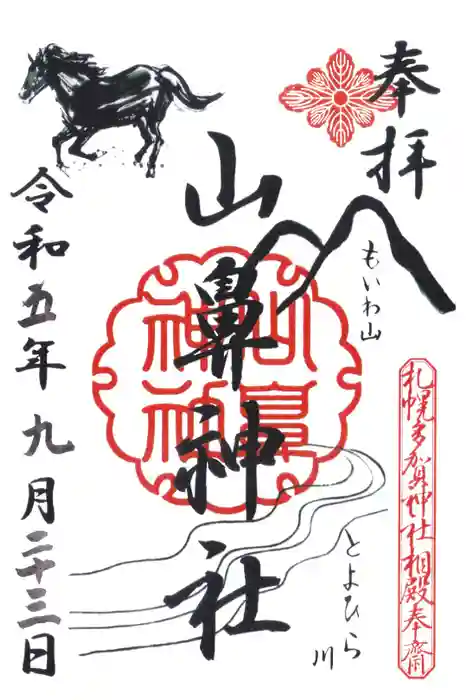 奉拝
もいわ山
札幌多賀神社相殿奉齋
とよひら川
山鼻神社
山鼻神社
令和五年九月二十三日